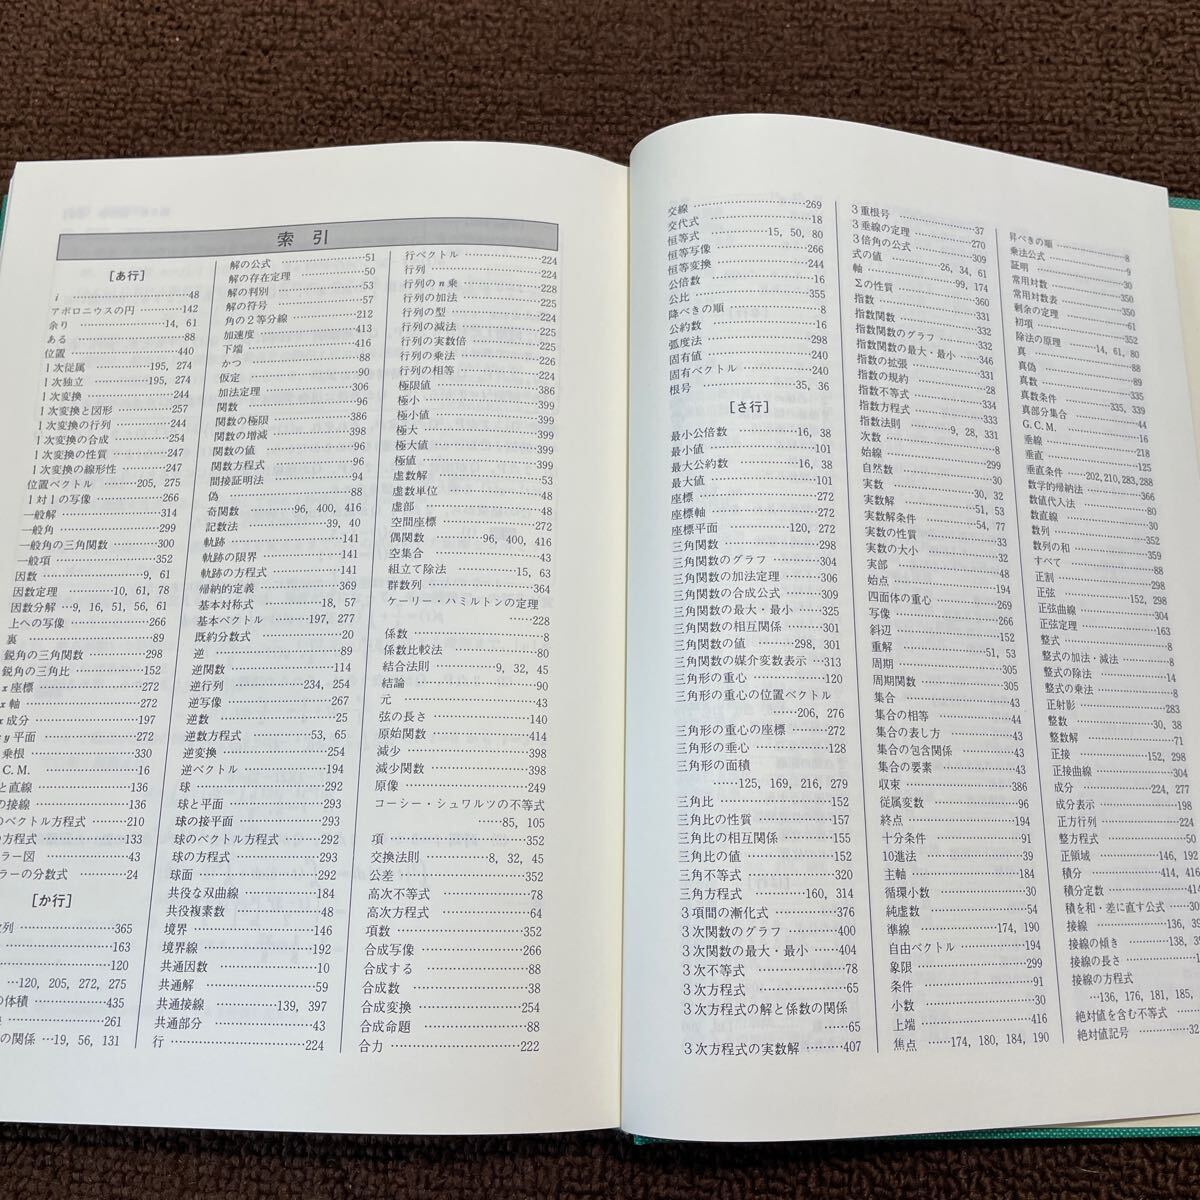 索引
[あ行]
i ……48
アポロニウスの円 ……142
余り ……14, 61
ある ……88
位置 ……440
1次従属 ……195, 274
1次独立 ……195, 274
1次変換 ……244
1次変換と図形 ……257
1次変換の行列 ……244
1次変換の合成 ……254
1次変換の性質 ……247
1次変換の線形性 ……247
位置ベクトル ……205, 275
1対1の写像 ……266
一般解 ……314
一般角 ……299
一般角の三角関数 ……300
一般項 ……352
因数 ……9, 61
因数定理 ……10, 61, 78
因数分解 …9, 16, 51, 56, 61
上への写像 ……266
裏 ……89
鋭角の三角関数 ……298
鋭角の三角比 ……152
x座標 ……272
x軸 ……272
x成分 ……197
y平面 ……272
乗根 ……330
C.M. ……16
と直線 ……136
の接線 ……136
のベクトル方程式 ……210
の方程式 ……133
ラー図 ……43
ラーの分数式 ……24
[か行]
数列 ……365
……163
……120
…120, 205, 272, 275
の体積 ……435
……261
の関係 …19, 56, 131
解の公式 ……51
解の存在定理 ……50
解の判別 ……53
解の符号 ……57
角の2等分線 ……212
加速度 ……413
下端 ……416
かつ ……88
仮定 ……90
加法定理 ……306
関数 ……96
関数の極限 ……386
関数の増減 ……398
関数の値 ……96
関数方程式 ……96
間接証明法 ……94
偽 ……88
奇関数 ……96, 400, 416
記数法 ……39, 40
軌跡 ……141
軌跡の限界 ……141
軌跡の方程式 ……141
帰納的定義 ……369
基本対称式 ……18, 57
基本ベクトル ……197, 277
既約分数式 ……20
逆 ……89
逆関数 ……114
逆行列 ……234, 254
逆写像 ……267
逆数 ……25
逆数方程式 ……53, 65
逆変換 ……254
逆ベクトル ……194
球 ……292
球と平面 ……293
球の接平面 ……293
球のベクトル方程式 ……292
球の方程式 ……293
球面 ……292
共役な双曲線 ……184
共役複素数 ……48
境界 ……146
境界線 ……192
共通因数 ……10
共通解 ……59
共通接線 ……139, 397
共通部分 ……43
行 ……224
行ベクトル ……224
行列 ……224
行列のn乗 ……228
行列の加法 ……225
行列の型 ……224
行列の減法 ……225
行列の実数倍 ……225
行列の乗法 ……226
行列の相等 ……224
極限値 ……386
極小 ……399
極小値 ……399
極大 ……399
極大値 ……399
極値 ……399
虚数解 ……53
虚数単位 ……48
虚部 ……48
空間座標 ……272
偶関数 ……96, 400, 416
空集合 ……43
組立て除法 ……15, 63
群数列 ……364
ケーリー・ハミルトンの定理
……228
係数 ……8
係数比較法 ……80
結合法則 ……9, 32, 45
結論 ……90
元 ……43
弦の長さ ……140
原始関数 ……414
減少 ……398
減少関数 ……398
原像 ……249
コーシー・シュワルツの不等式
……85, 105
項 ……352
交換法則 ……8, 32, 45
公差 ……352
高次不等式 ……78
高次方程式 ……64
項数 ……352
合成写像 ……266
合成する ……88
合成数 ……38
合成変換 ……254
合成命題 ……88
合力 ……222
交線 ……269
交代式 ……18
恒等式 ……15, 50, 80
恒等写像 ……266
恒等変換 ……244
公倍数 ……16
公比 ……355
降べきの順 ……8
公約数 ……16
弧度法 ……298
固有値 ……240
固有ベクトル ……240
根号 ……35, 36
[さ行]
最小公倍数 ……16, 38
最小値 ……101
最大公約数 ……16, 38
最大値 ……101
座標 ……272
座標軸 ……272
座標平面 ……120, 272
三角関数 ……298
三角関数のグラフ ……304
三角関数の加法定理 ……306
三角関数の合成公式 ……308
三角関数の最大・最小 ……325
三角関数の相互関係 ……301
三角関数の値 ……298, 301
三角関数の媒介変数表示 …313
三角形の重心 ……120
三角形の重心の位置ベクトル
……206, 276
三角形の重心の座標 ……272
三角形の垂心 ……128
三角形の面積
……125, 169, 216, 279
三角比 ……152
三角比の性質 ……157
三角比の相互関係 ……155
三角比の値 ……152
三角不等式 ……320
三角方程式 ……160, 314
3項間の漸化式 ……376
3次関数のグラフ ……400
3次関数の最大・最小 ……404
3次不等式 ……78
3次方程式 ……65
3次方程式の解と係数の関係
……65
3次方程式の実数解 ……407
3重根号 ……37
3垂線の定理 ……270
3倍角の公式 ……309
式の値 ……26, 34, 61
軸 ……99, 174
Σの性質 ……360
指数 ……331
指数関数 ……332
指数関数のグラフ ……332
指数関数の最大・最小 ……346
指数の拡張 ……331
指数の規約 ……28
指数不等式 ……334
指数方程式 ……333
指数法則 ……9, 28, 331
次数 ……8
始線 ……299
自然数 ……30
実数 ……30, 32
実数解 ……51, 53
実数解条件 ……54, 77
実数の性質 ……33
実数の大小 ……32
実部 ……48
始点 ……194
四面体の重心 ……269
写像 ……266
斜辺 ……152
重解 ……51, 53
周期 ……305
周期関数 ……305
集合 ……43
集合の相等 ……44
集合の表し方 ……43
集合の包含関係 ……43
集合の要素 ……43
収束 ……386
従属変数 ……96
終点 ……194
十分条件 ……91
10進法 ……39
主軸 ……184
循環小数 ……30
純虚数 ……54
準線 ……174, 190
自由ベクトル ……194
象限 ……299
条件 ……91
小数 ……30
上端 ……416
焦点 ……174, 180, 184, 190
昇べきの順 ……8
乗法公式 ……9
証明 ……30
常用対数 ……350
常用対数表 ……350
剰余の定理 ……61
初項 ……352
除法の原理 ……14, 61, 80
真 ……88
真偽 ……89
真数 ……335
真数条件 ……335, 339
真部分集合 ……44
G.C.M. ……16
垂線 ……218
垂直 ……125
垂直条件 ……202, 210, 283, 288
数学的帰納法 ……366
数値代入法 ……80
数直線 ……30
数列 ……352
数列の和 ……359
すべて ……88
正割 ……152
正弦 ……152, 298
正弦曲線 ……304
正弦定理 ……163
整式 ……8
整式の加法・減法 ……8
整式の除法 ……14
整式の乗法 ……8
正射影 ……283
整数 ……30, 38
整数解 ……71
正接 ……152, 298
正接曲線 ……304
成分 ……224, 277
成分表示 ……198
正方行列 ……224
整方程式 ……50
正領域 ……146, 192
積分 ……414, 416
積分定数 ……414
積を和・差に直す公式 ……30
接線 ……136, 39
接線の傾き ……138, 39
接線の長さ ……1
接線の方程式
……136, 176, 181, 185,
絶対値を含む不等式 ……
絶対値記号 ……32